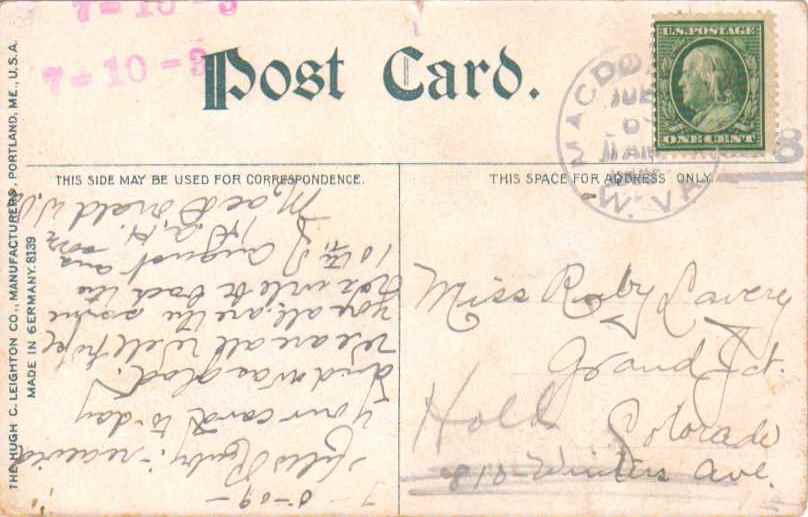 7-10-9
7-10-9
Post Card.
U.S. POSTAGE
ONE CENT
MACDO
W. VA
8
THIS SIDE MAY BE USED FOR CORRESPONDENCE.
THIS SPACE FOR ADDRESS ONLY.
THE HUGH C. LEIGHTON CO., MANUFACTURERS, PORTLAND, ME., U.S.A.
MADE IN GERMANY. 8139
7-8-09-
Hello Ruby:- received
Your card to-day
And was glad.
We are all well hope
you all are the same
write back the
10th of August and
MacDonald W.Va
Miss Ruby Lavery
Grand Jct.
Colorado
Hold
810-Winters Ave.